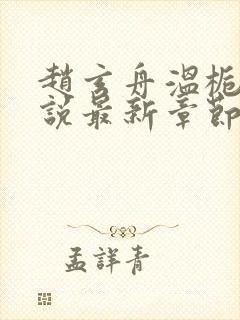 趙玄舟溫梔
說最新章節
孟詳青